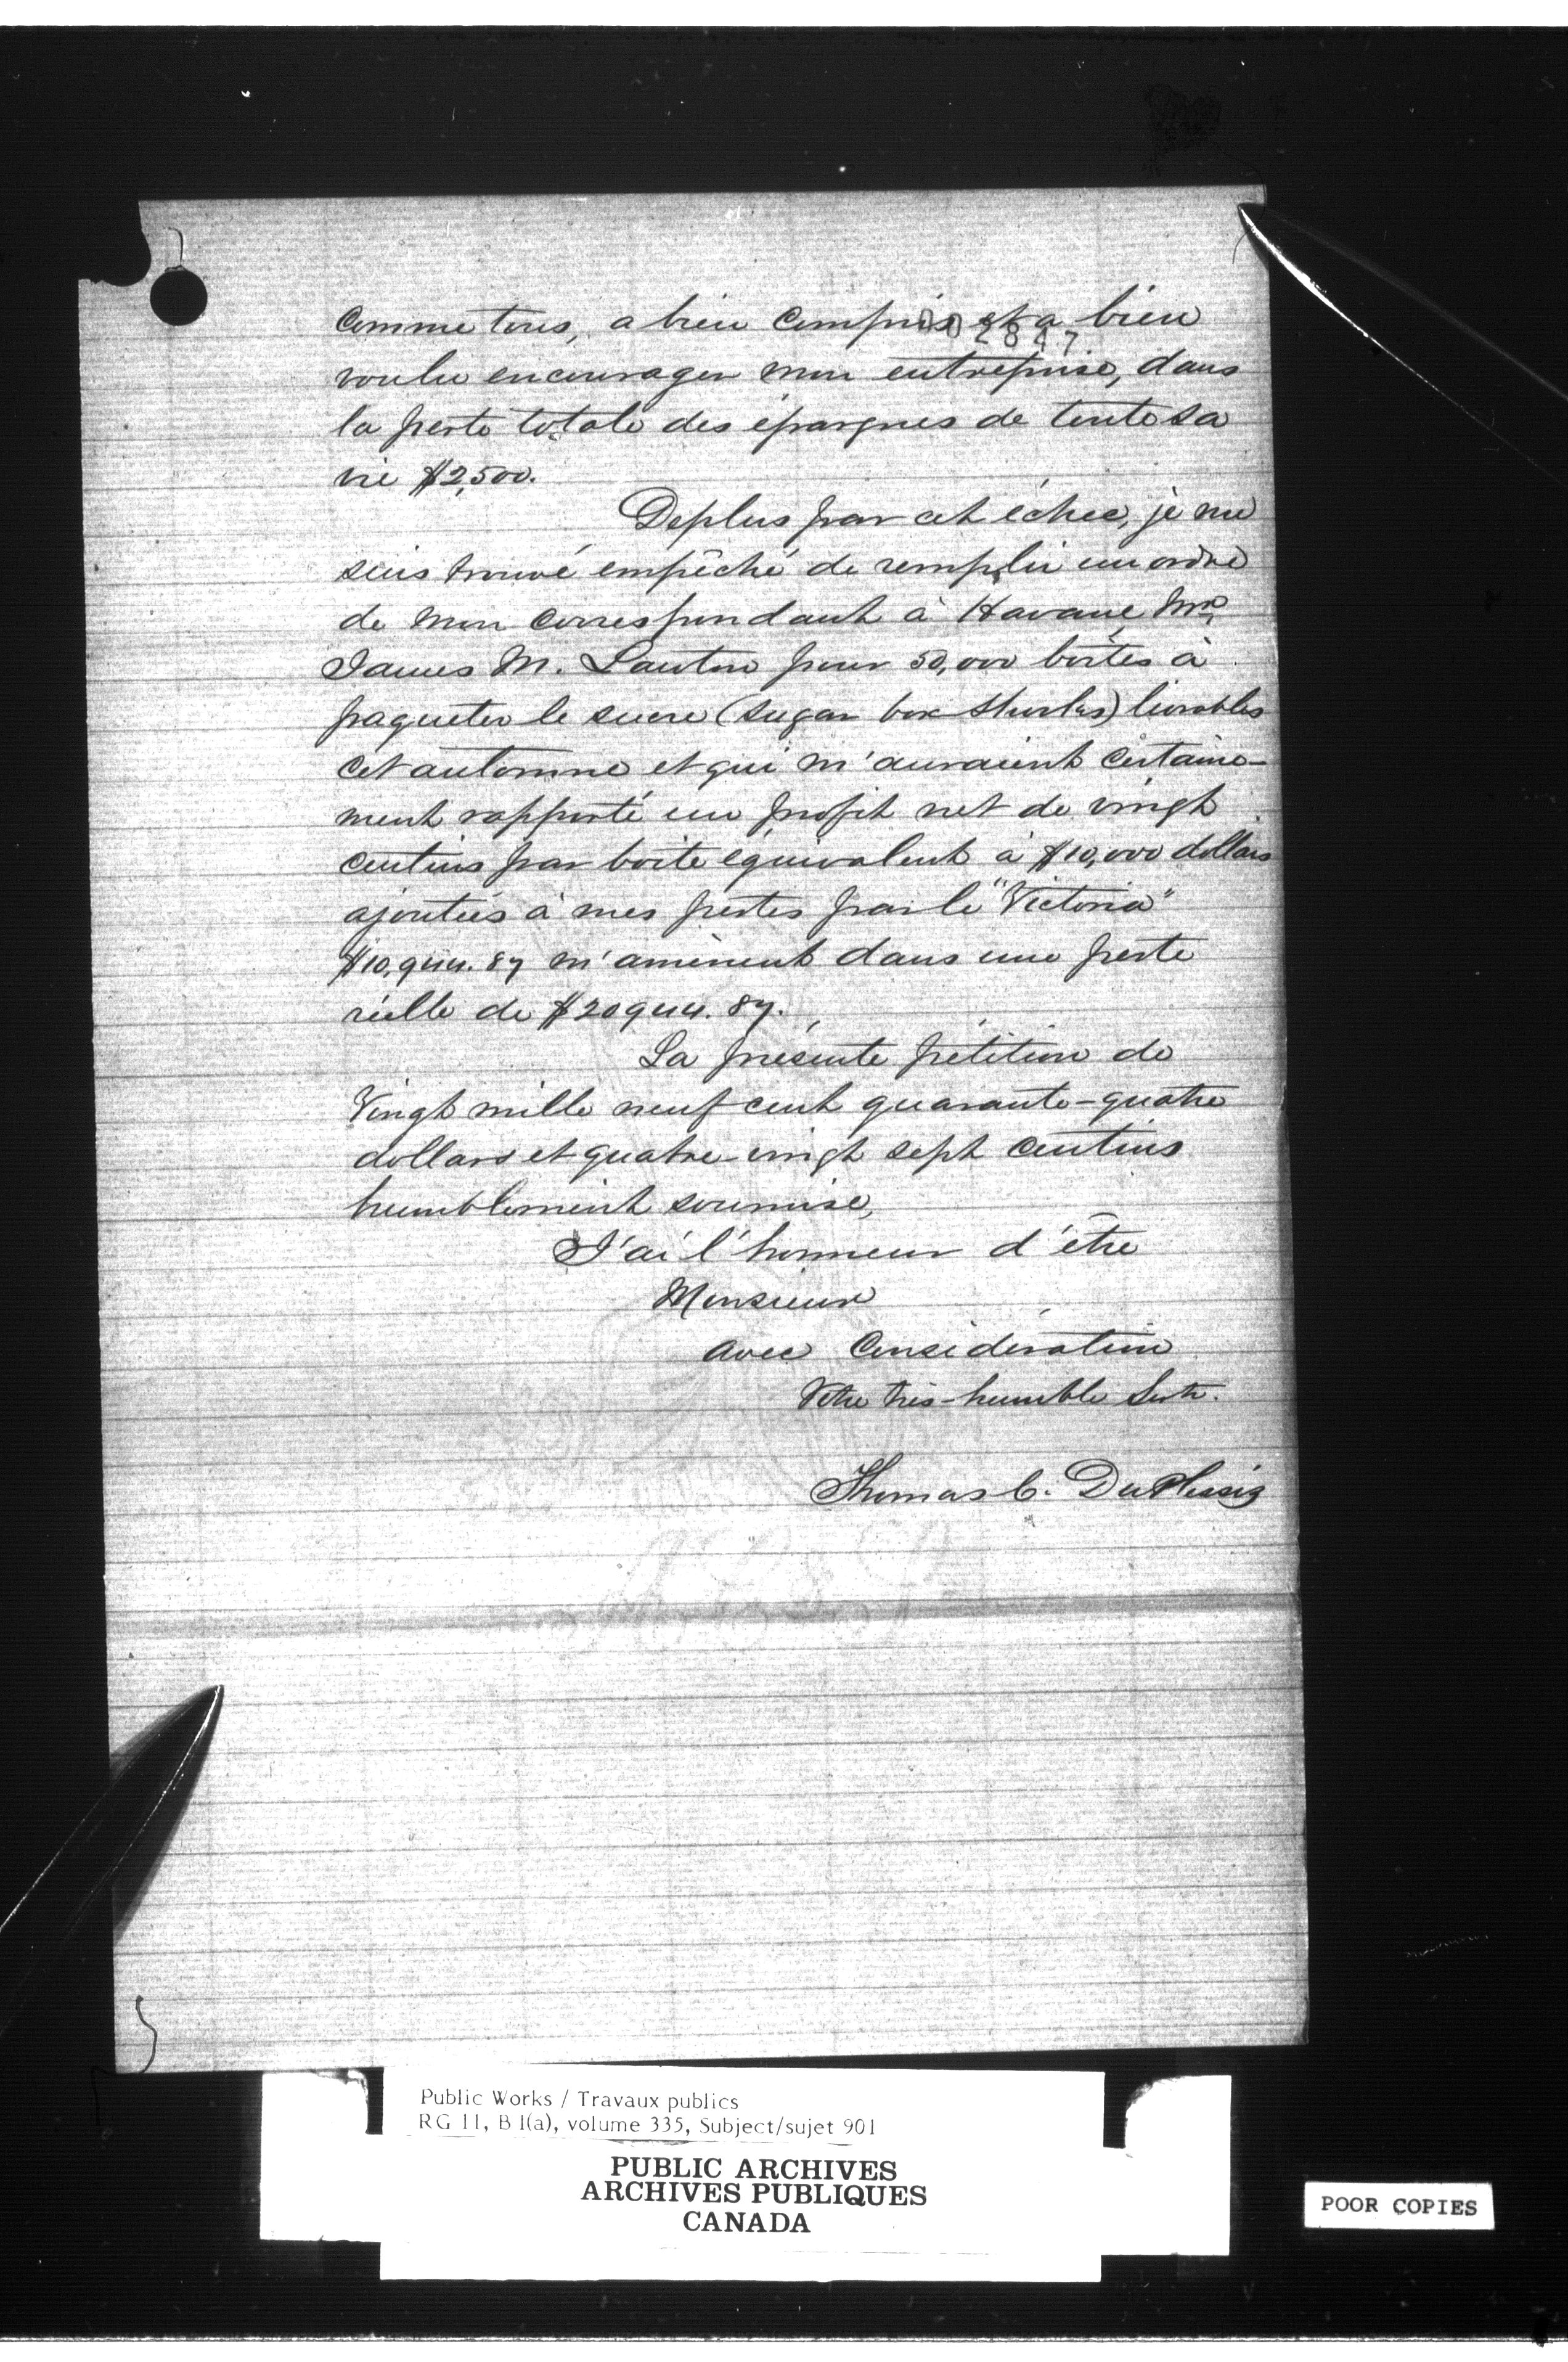 comme tous, a bien compris et a bien
002847
voulu encourager mon entreprise, dans
la perte totale des épargnes de toute sa
vie $2,500.
Deplus par cet échec, je me
suis trouvé empêché de remplir un ordre
de mon correspondant à Havane Mr
James M. Lawton pour 50,000 boîtes à
paqueter le sucre (sugar box shooks) livrables
cet automne et qui m'auraient certaine-
ment rapporté un profit net de vingt
centins par boîte équivalent à $10,000 dollars
ajoutées à mes pertes par le "Victoria"
$10,944.87 m'amènent dans une perte
réelle de $20944.87.
La présente pétition de
Vingt mille neuf cent quarante-quatre
dollars et quatre-vingt sept centins
humblement soumise,
J'ai l'honneur d'être
Monsieur
avec Considération
Votre très-humble Servtr.
Thomas C. DuPlessis
Public Works / Travaux publics
RG 11, B 1(a), volume 335, Subject/sujet 901
PUBLIC ARCHIVES
ARCHIVES PUBLIQUES
CANADA
POOR COPIES